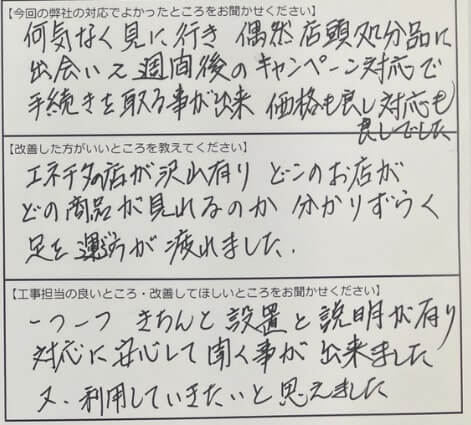 【今回の弊社の対応でよかったところをお聞かせください】
何気なく見に行き 偶然店頭処分品に
出会い 2週間後のキャンペーン対応で
手続きを取る事が出来 価格も良し対応も
良しでした
【改善した方がいいところを教えてください】
エネチタの店が沢山有り どこのお店が
どの商品が見れるのか 分かりずらく
足を運ぶが 疲れました.
【工事担当の良いところ・改善してほしいところをお聞かせください】
一つ一つ きちんと設置と説明が有り
対応に安心して聞く事が出来ました
又、利用していきたいと思えました